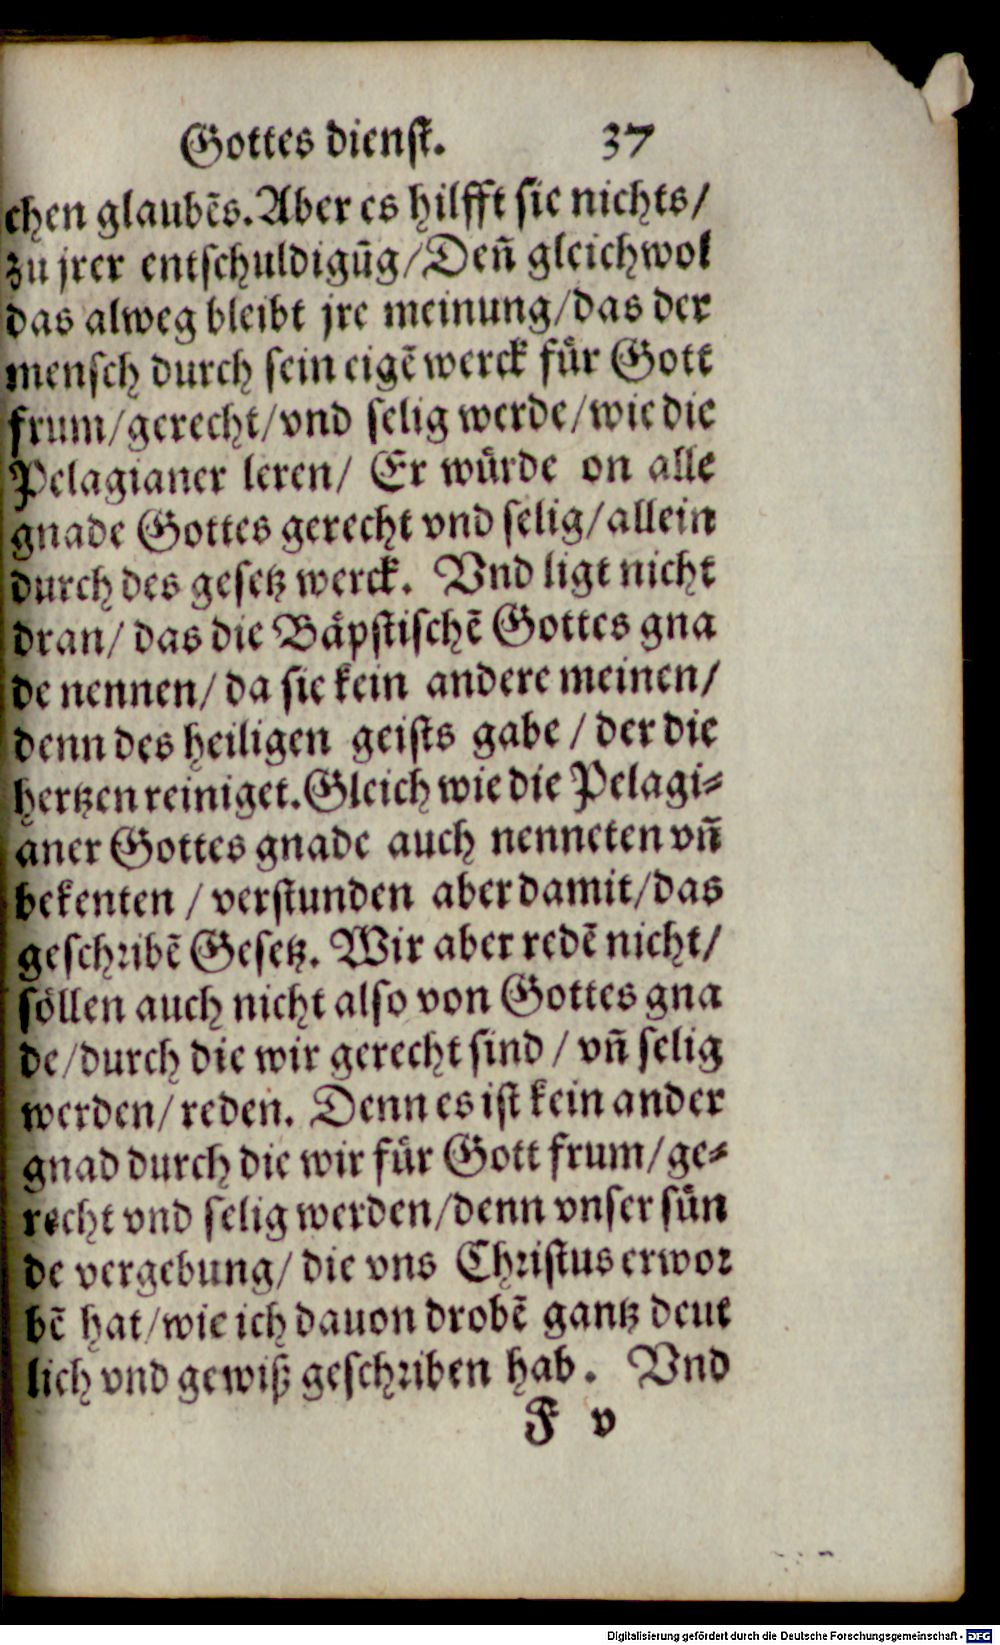 Gottes dienst. 37
chen glaubẽs. Aber es hilfft sie nichts/
zu jrer entschuldigũg/Deñ gleichwol
das alweg bleibt jre meinung/das der
mensch durch sein eigẽ werck fuͤr Gott
frum/gerecht/vnd selig werde/wie die
Pelagianer leren/ Er wuͤrde on alle
gnade Gottes gerecht vnd selig/allein
durch des gesetz werck. Vnd ligt nicht
dran/ das die Baͤpstischẽ Gottes gna
de nennen/ da sie kein andere meinen/
denn des heiligen geists gabe / der die
hertzen reiniget. Gleich wie die Pelagi⸗
aner Gottes gnade auch nenneten vñ
bekenten / verstunden aber damit/das
geschribẽ Gesetz. Wir aber redẽ nicht/
soͤllen auch nicht also von Gottes gna
de/durch die wir gerecht sind / vñ selig
werden/ reden. Denn es ist kein ander
gnad durch die wir fuͤr Gott frum/ge⸗
recht vnd selig werden/denn vnser suͤn
de vergebung/ die vns Christus erwor
bẽ hat/wie ich dauon drobẽ gantz deut
lich vnd gewiß geschriben hab. Vnd
F v
Digitalisierung gefördert durch die Deutsche Forschungsgemeinschaft - DFG